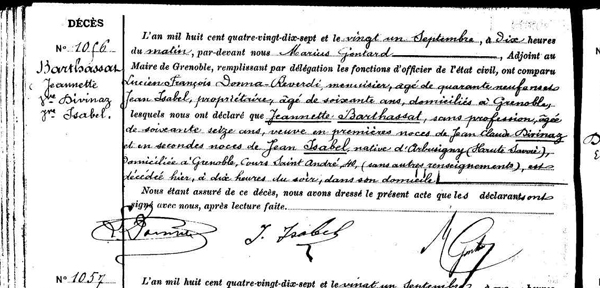 DÉCÈS
N° 1056
Barthassat
Jeannette
Vve Divinaz
Vve Isabel.
L'an mil huit cent quatre-vingt-dix-sept et le vingt un Septembre, à dix heures
du matin, par-devant nous Marius Gontard, Adjoint au
Maire de Grenoble, remplissant par délégation les fonctions d'officier de l'état civil, ont comparu
Lucien François Donna-Reverdi, menuisier, âgé de quarante neuf ans et
Jean Isabel, propriétaire, âgé de soixante ans, domiciliés à Grenoble,
lesquels nous ont déclaré que Jeannette Barthassat, sans profession, âgée
de soixante seize ans, veuve en premières noces de Jean Claude Divinaz
et en secondes noces de Jean Isabel, native d'Arbusigny (Haute Savoie),
domiciliée à Grenoble, Cours Saint André, 40, (sans autres renseignements), est
décédée hier, à dix heures du soir, dans son domicile.
Nous étant assuré de ce décès, nous avons dressé le présent acte que les déclarants ont
signé avec nous, après lecture faite.
J. Isabel
N° 1057
L'an mil huit cent quatre-vingt-dix-sept et le vingt un Septembre